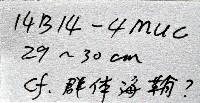 14B14-4MUC
29~30cm
cf. 群体海鞘?